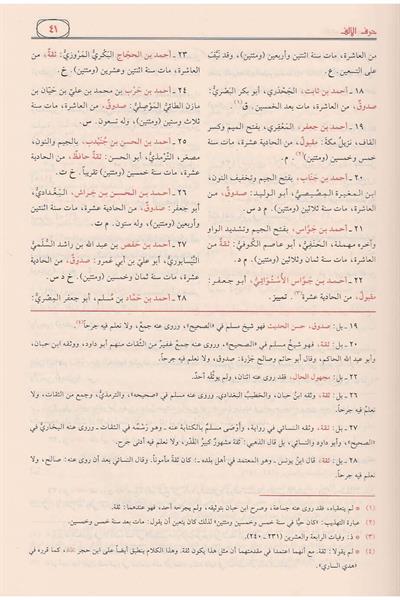 حرف الألف
٤١
من العاشرة، مات سنة اثنتين وأربعين (ومئتين)، وقد نيَّف
على التسعين. ع.
١٨ ـ أحمد بن ثابت، الجَحْدَري، أبو بكر البصريُّ:
صدوق، من العاشرة، مات بعد الخمسين. ق(١).
١٩ ـ أحمد بن جعفر، المَعْقِري، بفتح الميم وكسر
القاف، نزيلُ مكة: مقبول، من الحادية عشرة، مات سنة
خمس وخمسين (ومئتين)(٢). م.
٢٠ ـ أحمد بن جَنَاب، بفتح الجيم وتخفيف النون،
ابن المغيرة المِصِّيصي، أبو الوليد: صدوق، من
العاشرة، مات سنة ثلاثين (ومئتين). م د س.
٢١ ـ أحمد بن جَوَّاس، بفتح الجيم وتشديد الواو
وآخره مهملة، الحَنَفي، أبو عاصم الكوفيُّ: ثقة من
العاشرة، مات سنة ثمان وثلاثين (ومئتين). م د.
٢٢ ـ أحمد بن جَوَّاس الأُسْتُوَائي، أبو جعفر:
مقبول، من الحادية عشرة(٣). تمييز.
٢٣ ـ أحمد بن الحجَّاج البَكْريُّ المَرْوَزيُّ: ثقة، من
العاشرة، مات سنة اثنتين وعشرين (ومئتين). خ.
٢٤ ـ أحمد بن حَرْب بن محمد بن عليّ بن حيَّان بن
مازن الطائي المَوْصِلي: صدوق، من العاشرة، مات سنة
ثلاث وستين (ومئتين)، وله تسعون. س.
٢٥ ـ أحمد بن الحسن بن جُنَيْدِب، بالجيم والنون،
مصغر، التِّرْمذيُّ، أبو الحسن: ثقة حافظ، من الحادية
عشرة، مات سنة خمسين (ومئتين) تقريباً. خ ت.
٢٦ ـ أحمد بن الحسن بن خِرَاش، البَغْداديُّ،
أبو جعفر: صدوق، من الحادية عشرة، مات سنة اثنتين
وأربعين (ومئتين)، وله ستون. م ت.
٢٧ ـ أحمد بن حَفْص بن عبد الله بن راشد السُّلَمي
النَّيْسابوريُّ، أبو علي بن أبي عمرو: صدوق، من الحادية
عشرة، مات سنة ثمان وخمسين (ومئتين). خ د س.
٢٨ ـ أحمد بن حَمَّاد بن مُسلم، أبو جعفر المِصْريُّ:
١٩ ـ بل: صدوق، حسن الحديث فهو شيخ مسلم في «الصحيح»، وروى عنه جمعٌ، ولا نعلم فيه جرحاً(٤).
٢٠ ـ بل: ثقة، فهو شيخ مسلم في «الصحيح»، وروى عنه جمعٌ غفيرٌ من الثقات منهم أبو داود، ووثقه ابن حبان،
وأبو عبد الله الحاكم، وقال أبو حاتم وصالح جَزَرة: صدوق، ولا نعلم فيه جرحاً.
٢٢ ـ بل: مجهول الحال، فقد روى عنه اثنان، ولم يوثِّقه أحدٌ.
٢٦ ـ بل: ثقة، وثقه ابنُ حبان، والخطيبُ البغدادي. وروى عنه مسلم في «صحيحه»، والترمذيُّ، وجمع من الثقات، ولا
نعلمُ فيه جرحاً.
٢٧ ـ بل: ثقة، وثقه النسائي في رواية، وأوصى مسلمٌ بالكتابة عنه ـ وهو رَسْمُه في الثقات ـ وروى عنه البخاري في
«الصحيح»، وأبو داود، والنسائي، بل قال الذهبي: ثقة مشهورٌ كبيرُ القَدْر، ولا نعلم فيه أدنى جرح.
٢٨ ـ بل: ثقة، قال ابنُ يونس ـ وهو المعتمد في أهل بلده ـ: كان ثقةً مأموناً. وقال النسائي بعد أن روى عنه: صالح، ولا
نعلم فيه جرحاً.
(١) * لم يتعقباه، فقد روى عنه جماعة، وصرح ابن حبان بتوثيقه، ولم يجرحه أحد، فهو عندهما: ثقة.
(٢) عبارة التهذيب: «كان حيًّا في سنة خمس وخمسين ومئتين» لذلك كان يتعين أن يقول: مات بعد سنة خمس وخمسين.
(٣) * ذ: وفيات الرابعة والعشرين (٢٣١ ـ ٢٤٠).
(٤) * لم يقولا: ثقة. مع أنهما اعتمدا في مقدمتهما أن مثل هذا يكون ثقة. وهذا الكلام ينطبق أيضاً على ابن حجر نفسه، كما قرره في
«هدي الساري».